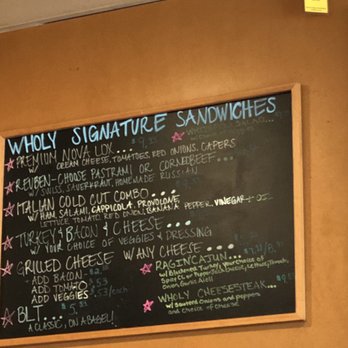 WHOLY SIGNATURE SANDWICHES
PREMIUM NOVA LOX...
CREAM CHEESE, TOMATOES, RED ONIONS, CAPERS
REUBEN- CHOOSE PASTRAMI OR CORNED BEEF...
W/ SWISS, SAUERKRAUT, HOMEMADE RUSSIAN
ITALIAN COLD CUT COMBO...
W/ HAM, SALAMI, CAPPICOLA, PROVOLONE,
LETTUCE, TOMATO, RED ONION, BANANA PEPPER, VINEGAR +
TURKEY & BACON & CHEESE...
W/ YOUR CHOICE OF VEGGIES & DRESSING
GRILLED CHEESE W/ ANY CHEESE...
ADD BACON-
ADD TOMATO
ADD VEGGIES
BLT...
A CLASSIC, ON A BAGEL!
RAGIN' CAJUN...
W/ Blackened Turkey, your choice of
Onion, Garlic Aioli
WHOLY CHEESESTEAK...
W/ Sauteed Onions and peppers
and choice of cheese